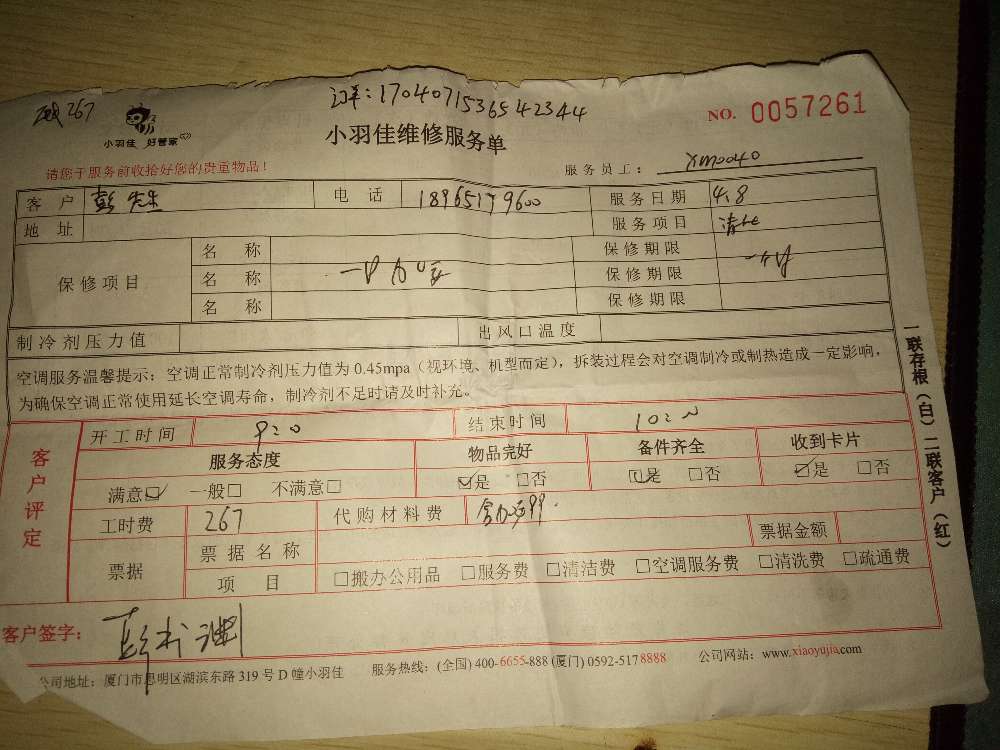 267
订单:1704071536542344
NO. 0057261
小羽佳 好管家
小羽佳维修服务单
请您于服务前收拾好您的贵重物品!
服务员工: XM0040
客户 彭先生 电话 18965179600 服务日期 4.8
地址 服务项目 清洗
保修项目 名称 保修期限
名称 一中加气 保修期限 一个月
名称 保修期限
制冷剂压力值 出风口温度
空调服务温馨提示:空调正常制冷剂压力值为0.45mpa(视环境、机型而定),拆装过程会对空调制冷或制热造成一定影响,
为确保空调正常使用延长空调寿命,制冷剂不足时请及时补充。
一联存根(白)二联客户(红)
客户评定
开工时间 9:20 结束时间 10:20
服务态度 物品完好 备件齐全 收到卡片
满意☑ 一般□ 不满意□ ☑是 □否 ☑是 □否 ☑是 □否
工时费 267 代购材料费
票据 票据名称 票据金额
项目 □搬办公用品 □服务费 □清洁费 □空调服务费 □清洗费 □疏通费
客户签字:
公司地址:厦门市思明区湖滨东路319号D幢小羽佳 服务热线:(全国)400-6655-888(厦门)0592-5178888 公司网站:www.xiaoyujia.com